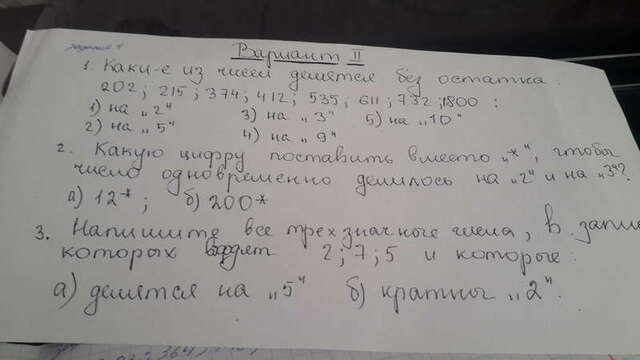 задание 4
Вариант II
1. Каки-е из чисел делятся без остатка
202; 215; 374; 412; 535; 611; 732; 1800 :
1) на „2" 3) на „3" 5) на „10"
2) на „5" 4) на „9"
2. Какую цифру поставить вместо „*", чтобы
число одновременно делилось на „2" и на „3"?
а) 12*; б) 200*
3. Напишите все трехзначные числа, в запи
которых входят 2; 7; 5 и которые:
а) делятся на „5" б) кратны „2".